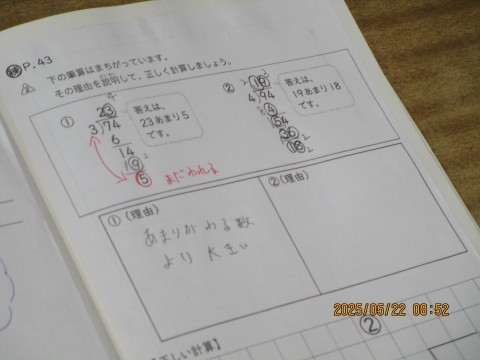 P.43
下の筆算はまちがっています。
その理由を説明して、正しく計算しましょう。
①
23
3)74
6
14
9
5
答えは、
23あまり5
です。
まだわれる
②
19
4)94
4
54
36
18
答えは、
19あまり18
です。
①(理由)
あまりがわる数
より大きい
②(理由)
2025/05/22 08:52
②
正しい計算】